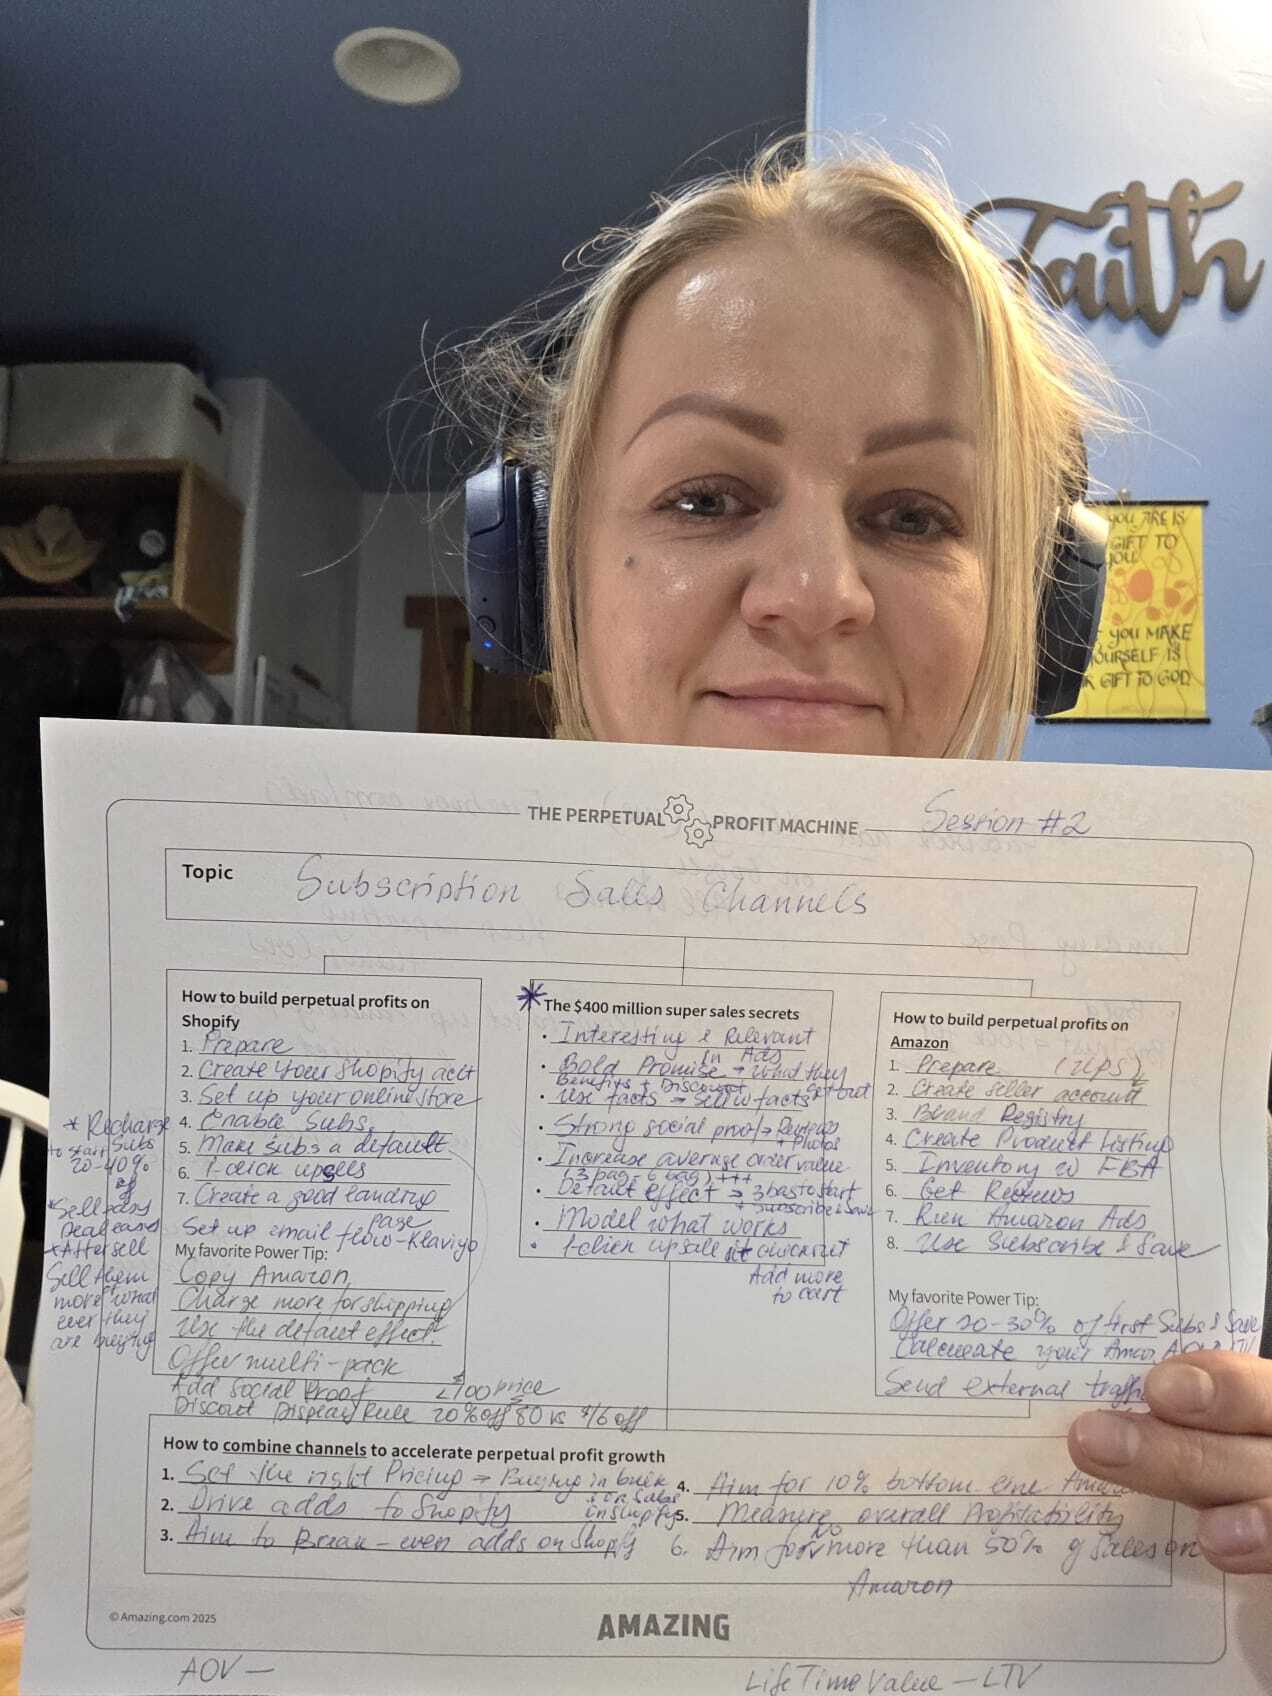 Faith
YOU ARE IS
GIFT TO
YOU
YOU MAKE
YOURSELF IS
GIFT TO GOD
THE PERPETUAL PROFIT MACHINE
Session #2
Topic
Subscription Sales Channels
How to build perpetual profits on
Shopify
1. Prepare
2. Create Your Shopify acct
3. Set up your online store
4. Enable Subs.
5. Make subs a default
6. 1-click upsells
7. Create a good landing
page
Set up email flow-Klaviyo
My favorite Power Tip:
Copy Amazon
Charge more for shipping
Use the default effect
Offer multi-pack
Add Social Proof <$100 price
Discout Display Rule 20% off $80 vs $16 off
* Recharge
to start Subs
20-40%
of
* Sell easy
Deal easo
* Aftersell
Sell them
more what
ever they
are buying
* The $400 million super sales secrets
• Interesting & Relevant
in Ads
• Bold Promise → what they
Benefits + Discount get out
• Use facts → Sell w facts
• Strong social proof → Reviews
+ Photos
• Increase average order value
(3 bag, 6 bag) +++
• Default effect → 3 bas to start
+ Subscribe & Save
• Model what works
• 1-click upsale at checkout
Add more
to cart
How to build perpetual profits on
Amazon
1. Prepare
2. Create seller account
3. Brand Registry
4. Create Product Listing
5. Inventory w FBA
6. Get Reviews
7. Run Amazon Ads
8. Use Subscribe & Save
My favorite Power Tip:
Offer 20-30% of first Subs & Save
Calculate your
Send external traffic
How to combine channels to accelerate perpetual profit growth
1. Set the right Pricing → Buying in bulk
+ or Subs
in Shopify
2. Drive adds to Shopify
3. Aim to Break-even adds on Shopify
4. Aim for 10% bottom-line
5. Measure overall Profitability
6. Aim for no more than 50% of sales on
Amazon
© Amazing.com 2025
AMAZING
AOV —
LifeTimeValue — LTV